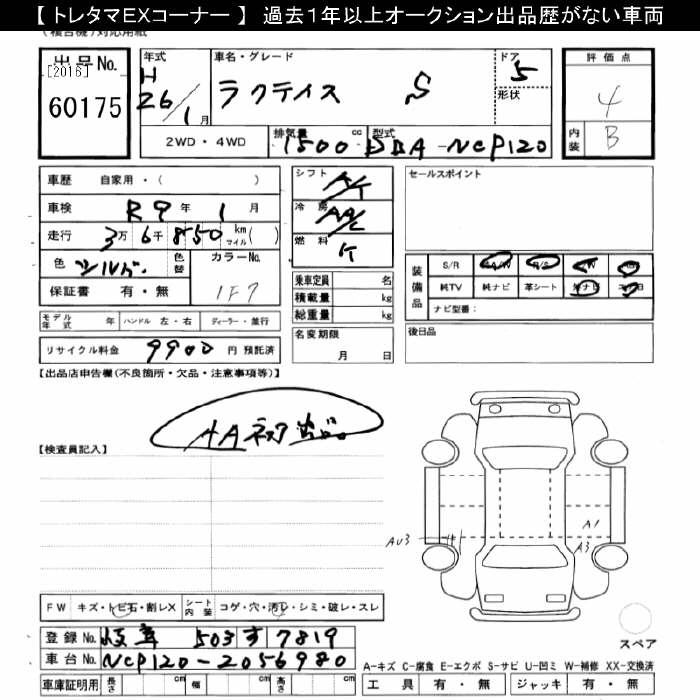 【トレタマEXコーナー】 過去1年以上オークション出品歴がない車両
出品No. [2016] 60175
年式 H 26/1月
車名・グレード ラクティス S
ドア 5
形状
評価点 4
内装 B
2WD・4WD
排気量 1500 cc
型式 DBA-NCP120
車歴 自家用・( )
車検 R9年 1月
走行 3万 6千 850 km マイル( )
色 シルバー 色替
カラーNo. 1F7
保証書 有・無
シフト A/T
冷房 AA/C
燃料
乗車定員 名
積載量 kg
総重量 kg
名変期限
月 日
セールスポイント
装備品
S/R A/W P/S P/W
純TV 純ナビ 革シート
ナビ型番:
後日品
モデル年式 年 ハンドル 左・右 ディーラー・並行
リサイクル料金 9900 円 預託済
【出品店申告欄(不良箇所・欠品・注意事項等)】
AAネット出品
【検査員記入】
AU3
A1
A3
FW キズ・トビ石・割レX
シート内装 コゲ・穴・汚レ・シミ・破レ・スレ
登録No. 岐阜 503 す 7819
車台No. NCP120-2056980
車庫証明用 長さ cm 幅 cm 高さ cm
スペア
A-キズ C-腐食 E-エクボ S-サビ U-凹ミ W-補修 XX-交換済
工具 有・無 ジャッキ 有・無